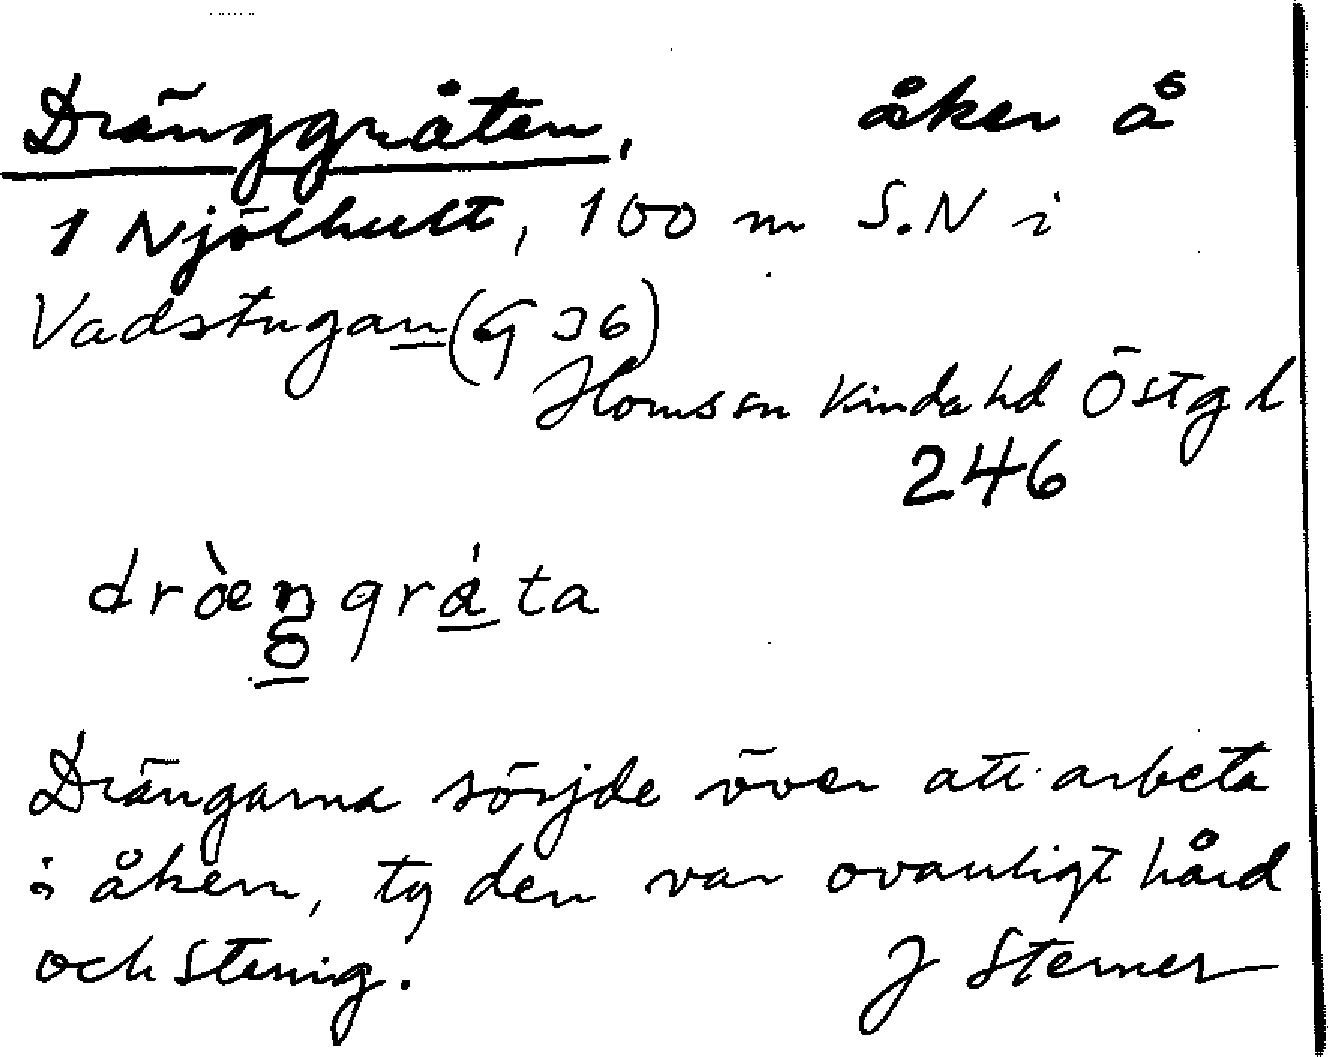 Dränggråten, åker å
1 Njölhult, 100 m S.N i
Vadstugan (G 36)
Horns sn Kinda hd Östgl
246
dràen grá ta
Drängarna sörjde över att arbeta
i åkern, ty den var ovanligt hård
och stenig. J Sterner